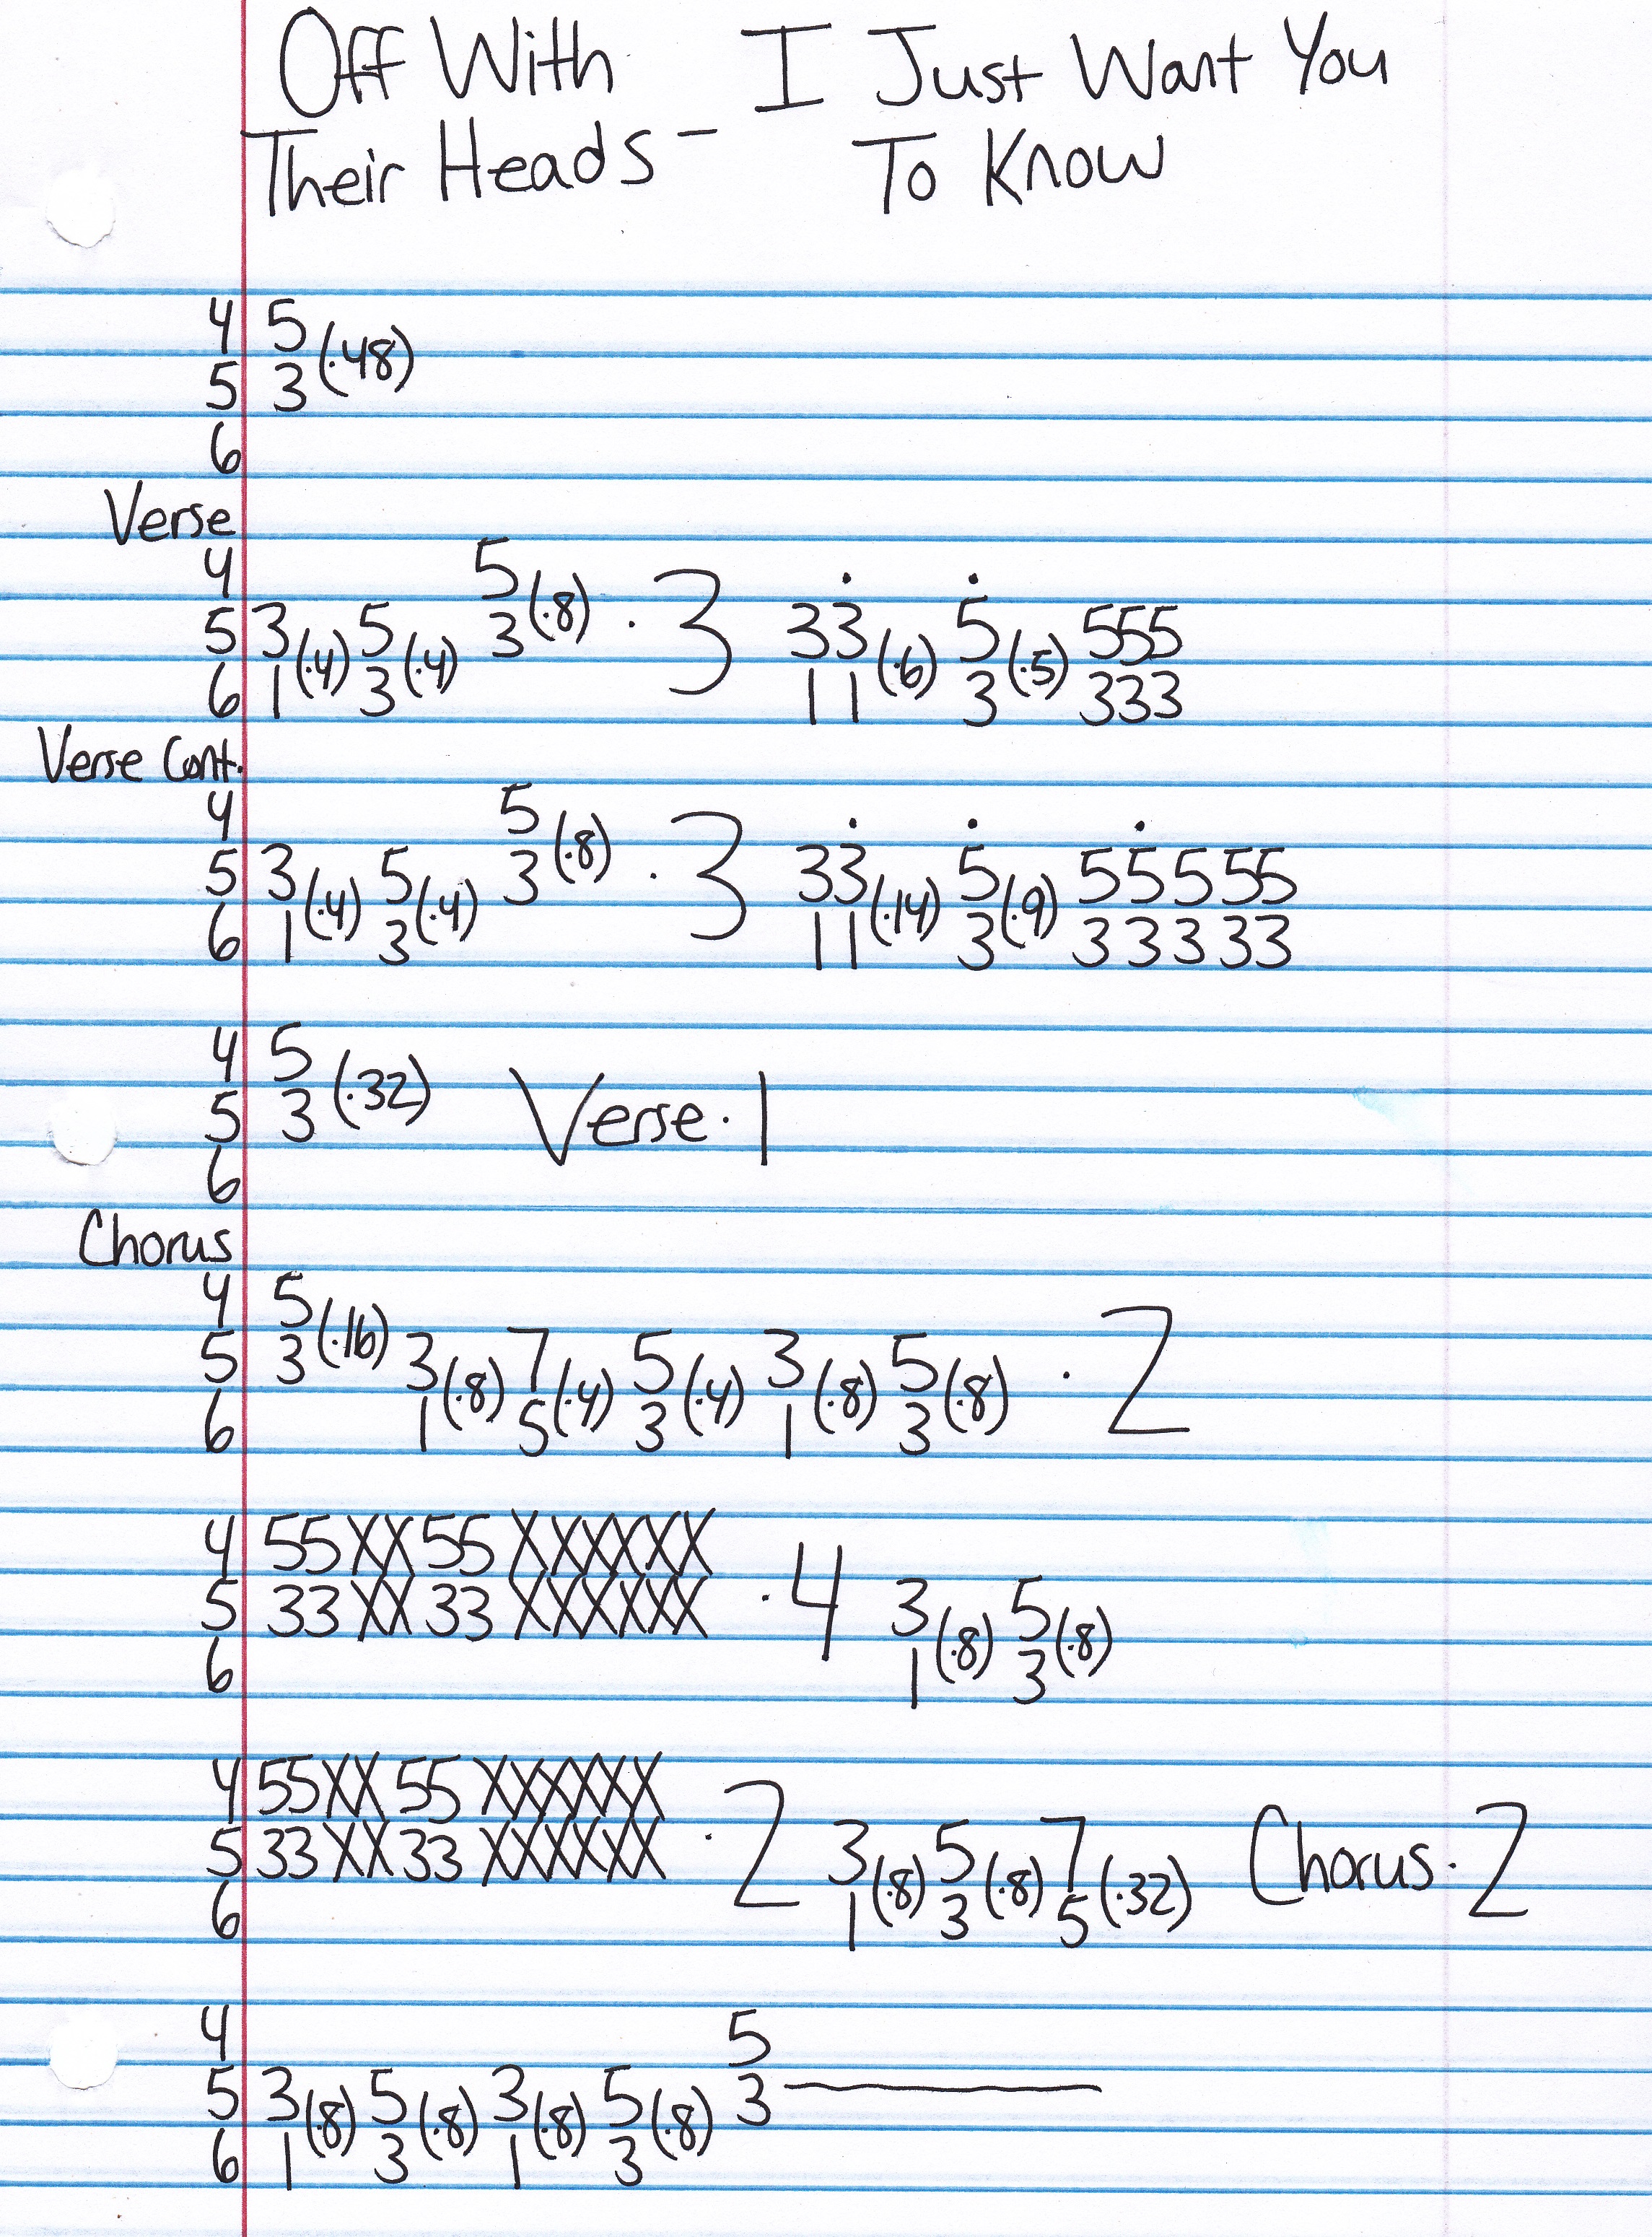 Off With - I Just Want You
Their Heads - To Know
4 5
5 3 (·48)
6
Verse
4 5
5 3 5 3 (·8) · 3 33 5 555
6 1 (·4) 3 (·4) 11 (·6) 3 (·5) 333
Verse Cont.
4 5
5 3 5 3 (·8) · 3 33 5 55555
6 1 (·4) 3 (·4) 11 (·14) 3 (·9) 33333
4 5
5 3 (·32) Verse · 1
6
Chorus
4 5
5 3 (·16) 3 7 5 3 5 · 2
6 1 (·8) 5 (·4) 3 (·4) 1 (·8) 3 (·8)
4 55XX55 XXXXXX
5 33XX33 XXXXXX · 4 3 5
6 1 (·8) 3 (·8)
4 55XX55 XXXXXX
5 33XX33 XXXXXX · 2 3 5 7 Chorus · 2
6 1 (·8) 3 (·8) 5 (·32)
4 5
5 3 5 3 5 3
6 1 (·8) 3 (·8) 1 (·8) 3 (·8)